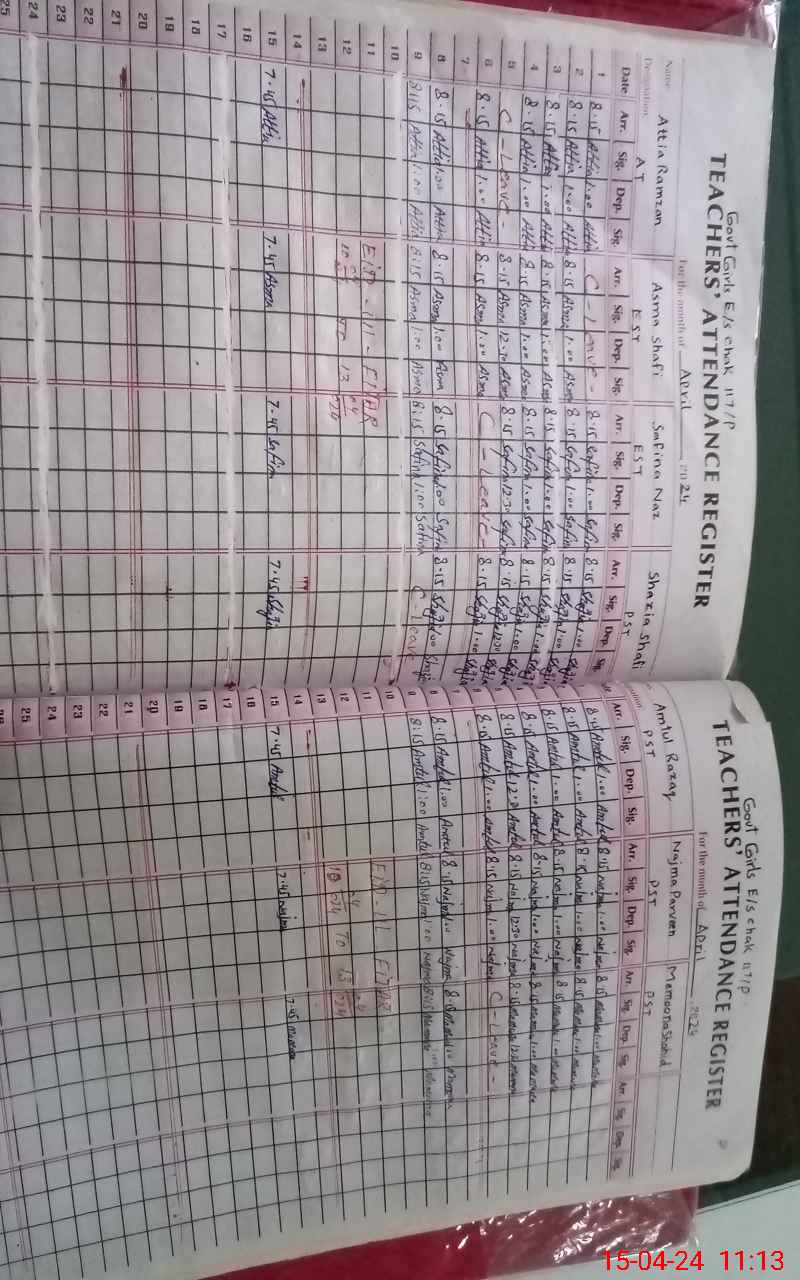 Govt Girls E/s chak 117/P
TEACHERS' ATTENDANCE REGISTER
For the month of April 2024
Name Attia Ramzan Asma Shafi Safina Naz Shazia Shafi
Designation AT EST EST PST
Date Arr. Sig. Dep. Sig. Arr. Sig. Dep. Sig. Arr. Sig. Dep. Sig. Arr. Sig. Dep. Sig.
1 8.15 Attia 1.00 Attia C - Leave - 8.15 Safina 1.00 Safina 8.15 Shazia 1.00 Shazia
2 8.15 Attia 1.00 Attia 8.15 Asma 1.00 Asma 8.15 Safina 1.00 Safina 8.15 Shazia 1.00 Shazia
3 8.15 Attia 1.00 Attia 8.15 Asma 1.00 Asma 8.15 Safina 1.00 Safina 8.15 Shazia 1.00 Shazia
4 8.15 Attia 1.00 Attia 8.15 Asma 1.00 Asma 8.15 Safina 1.00 Safina 8.15 Shazia 1.00 Shazia
5 C - Leave - 8.15 Asma 12.30 Asma 8.15 Safina 12.30 Safina 8.15 Shazia 12.30 Shazia
6 8.15 Attia 1.00 Attia 8.15 Asma 1.00 Asma C - Leave - 8.15 Shazia 1.00 Shazia
7
8 8.15 Attia 1.00 Attia 8.15 Asma 1.00 Asma 8.15 Safina 1.00 Safina 8.15 Shazia 1.00 Shazia
9 8:15 Attia 1:00 Attia 8:15 Asma 1:00 Asma 8:15 Safina 1:00 Safina C - Leave
10
11 EID-UL-FITAR
12 10 04 2024 TO 13 04 2024
13
14
15 7.45 Attia 7.45 Asma 7.45 Safina 7.45 Shazia
16
17
18
19
20
21
22
23
24
25
Govt Girls E/s chak 117/P
TEACHERS' ATTENDANCE REGISTER
For the month of April, 2024
Amtul Razaq Najma Parveen Memoona Shahid
PST PST PST
Arr. Sig. Dep. Sig. Arr. Sig. Dep. Sig. Arr. Sig. Dep. Sig. Arr. Sig. Dep. Sig.
8.15 Amtul 1.00 Amtul 8.15 Najma 1.00 Najma 8.15 1.00
8.15 Amtul 1.00 Amtul 8.15 Najma 1.00 Najma 8.15 1.00
8.15 Amtul 1.00 Amtul 8.15 Najma 1.00 Najma 8.15 1.00
8.15 Amtul 1.00 Amtul 8.15 Najma 1.00 Najma 8.15 1.00
8.15 Amtul 12.30 Amtul 8.15 Najma 12.30 Najma 8.15 12.30
8.15 Amtul 1.00 Amtul 8.15 Najma 1.00 Najma C - Leave -
7
8 8.15 Amtul 1.00 Amtul 8.15 Najma 1.00 Najma 8.15 1.00
9 8:15 Amtul 1:00 Amtul 8:15 Najma 1:00 Najma 8:15 1:00
10
11 EID-UL FITAR
12 10 04 2024 TO 13 04 2024
13
14
15 7.45 Amtul 7.45 Najma 7.45
16
17
18
19
20
21
22
23
24
25
15-04-24 11:13